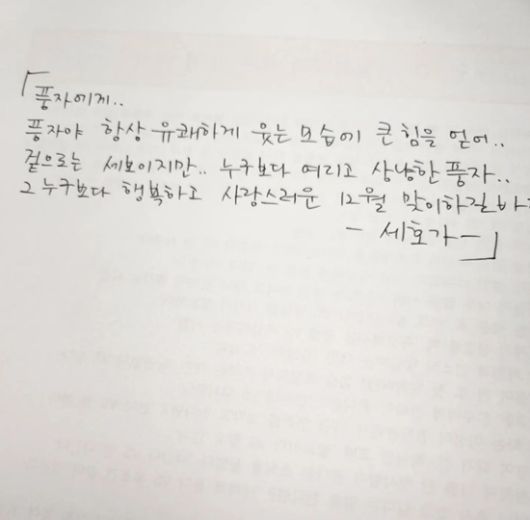 「풍자에게..
풍자야 항상 유쾌하게 웃는 모습에 큰 힘을 얻어..
겉으로는 세보이지만.. 누구보다 여리고 상냥한 풍자..
그 누구보다 행복하고 사랑스러운 12월 맞이하길 바
- 세호가 -」